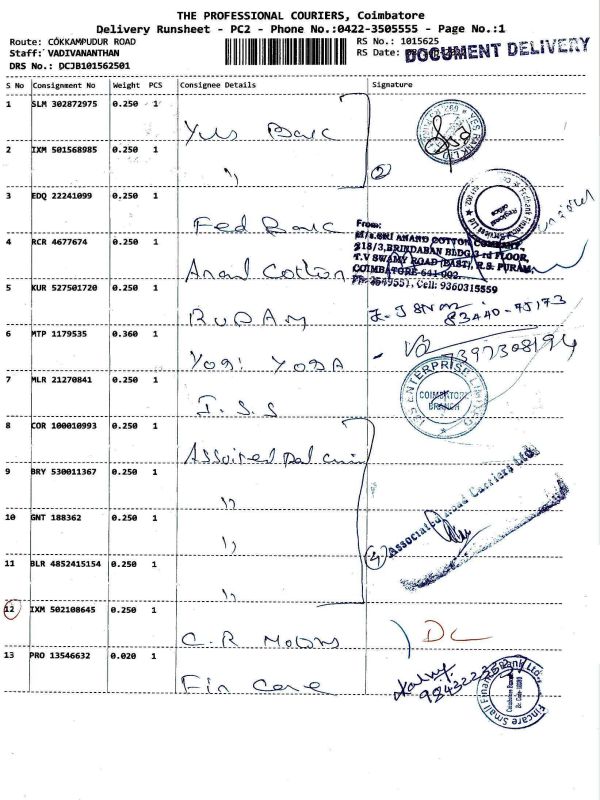 THE PROFESSIONAL COURIERS, Coimbatore
Delivery Runsheet - PC2 - Phone No.:0422-3505555 - Page No.:1
Route: COKKAMPUDUR ROAD
Staff: VADIVANANTHAN
DRS No.: DCJB101562501
RS No.: 1015625
RS Date:
DOCUMENT DELIVERY
S No Consignment No Weight PCS Consignee Details Signature
1 SLM 302872975 0.250 1
Yes Bank
2 IXM 501568985 0.250 1
"
2
YES BANK LTD
3 EDQ 22241099 0.250 1
Fed Bank
Fedbank Financial Services Ltd
Regional Office
4 RCR 4677674 0.250 1
Anand Cotton
From:
M/s.SRI ANAND COTTON COMPANY,
218/3,BRINDABAN BLDG,3 rd FLOOR,
T.V SWAMY ROAD (EAST), R.S. PURAM,
COIMBATORE-641 002.
Cell: 9360315559
5 KUR 527501720 0.250 1
RUPAM
6 MTP 1179535 0.360 1
YOGI YOGA
7397308194
7 MLR 21270841 0.250 1
I.S.S
ENTERPRISE LIMITED
COIMBATORE
BRANCH
8 COR 100010993 0.250 1
9 BRY 530011367 0.250 1
"
10 GNT 188362 0.250 1
"
11 BLR 4852415154 0.250 1
"
4
Associated Road Carriers Ltd.
12 IXM 502108645 0.250 1
C.R Motors
DC
13 PRO 13546632 0.020 1
Fin Care
Fincare Small Finance Bank Ltd.